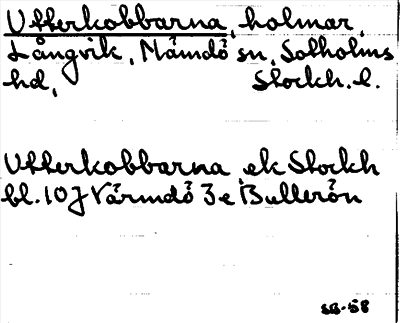 Utterkobbarna, holmar,
Långvik, Nämdö sn, Sotholms
hd, Stockh. l.
Utterkobbarna ek Stockh
bl. 10J Värmdö 3e Bullerön
SB-58